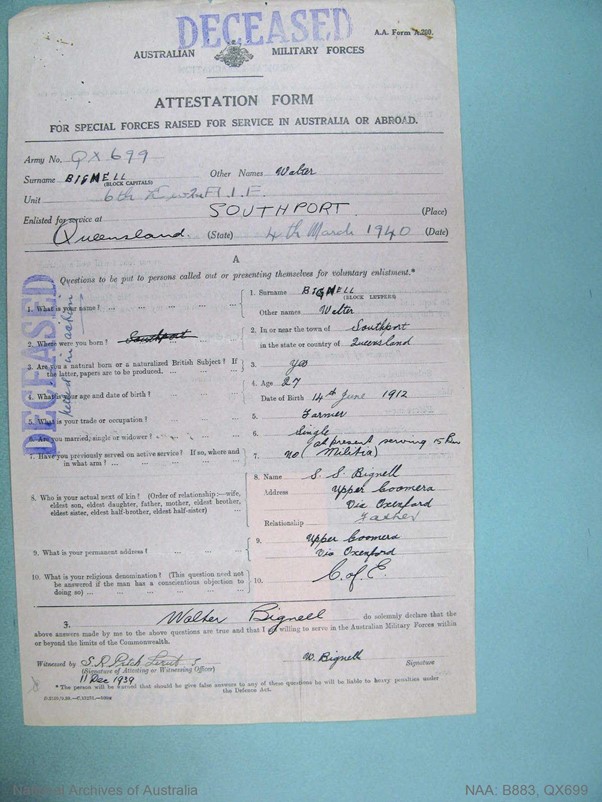 DECEASED
A.A. Form A.200.
AUSTRALIAN MILITARY FORCES
ATTESTATION FORM
FOR SPECIAL FORCES RAISED FOR SERVICE IN AUSTRALIA OR ABROAD.
Army No. QX699
Surname BIGNELL Other Names Walter
(BLOCK CAPITALS)
Unit 6th A.I.F.
Enlisted for service at SOUTHPORT (Place)
Queensland (State) 4th March 1940 (Date)
A
Questions to be put to persons called out or presenting themselves for voluntary enlistment.*
DECEASED
killed in action
1. What is your name? ... 1. Surname BIGNELL
(BLOCK LETTERS)
Other names Walter
2. Where were you born? ... Southport 2. In or near the town of Southport
in the state or country of Queensland
3. Are you a natural born or a naturalized British Subject? If the latter, papers are to be produced. ... 3. Yes
4. What is your age and date of birth? 4. Age 27
Date of Birth 14th June 1912
5. What is your trade or occupation? 5. Farmer
6. Are you married, single or widower? 6. Single
at present serving 15 Bn
7. Have you previously served on active service? If so, where and in what arm? ... 7. no (Militia)
8. Who is your actual next of kin? (Order of relationship:—wife, eldest son, eldest daughter, father, mother, eldest brother, eldest sister, eldest half-brother, eldest half-sister) 8. Name S. S. Bignell
Address Upper Coomera
Via Oxenford
Relationship Father
9. What is your permanent address? 9. Upper Coomera
Via Oxenford
10. What is your religious denomination? (This question need not be answered if the man has a conscientious objection to doing so) ... 10. C. of E.
I, Walter Bignell do solemnly declare that the
above answers made by me to the above questions are true and that I am willing to serve in the Australian Military Forces within
or beyond the limits of the Commonwealth.
Witnessed by S.R. Lieut W. Bignell Signature
(Signature of Attesting or Witnessing Officer)
11 Dec 1939
* The person will be warned that should he give false answers to any of these questions he will be liable to heavy penalties under
the Defence Act.
National Archives of Australia NAA: B883, QX699